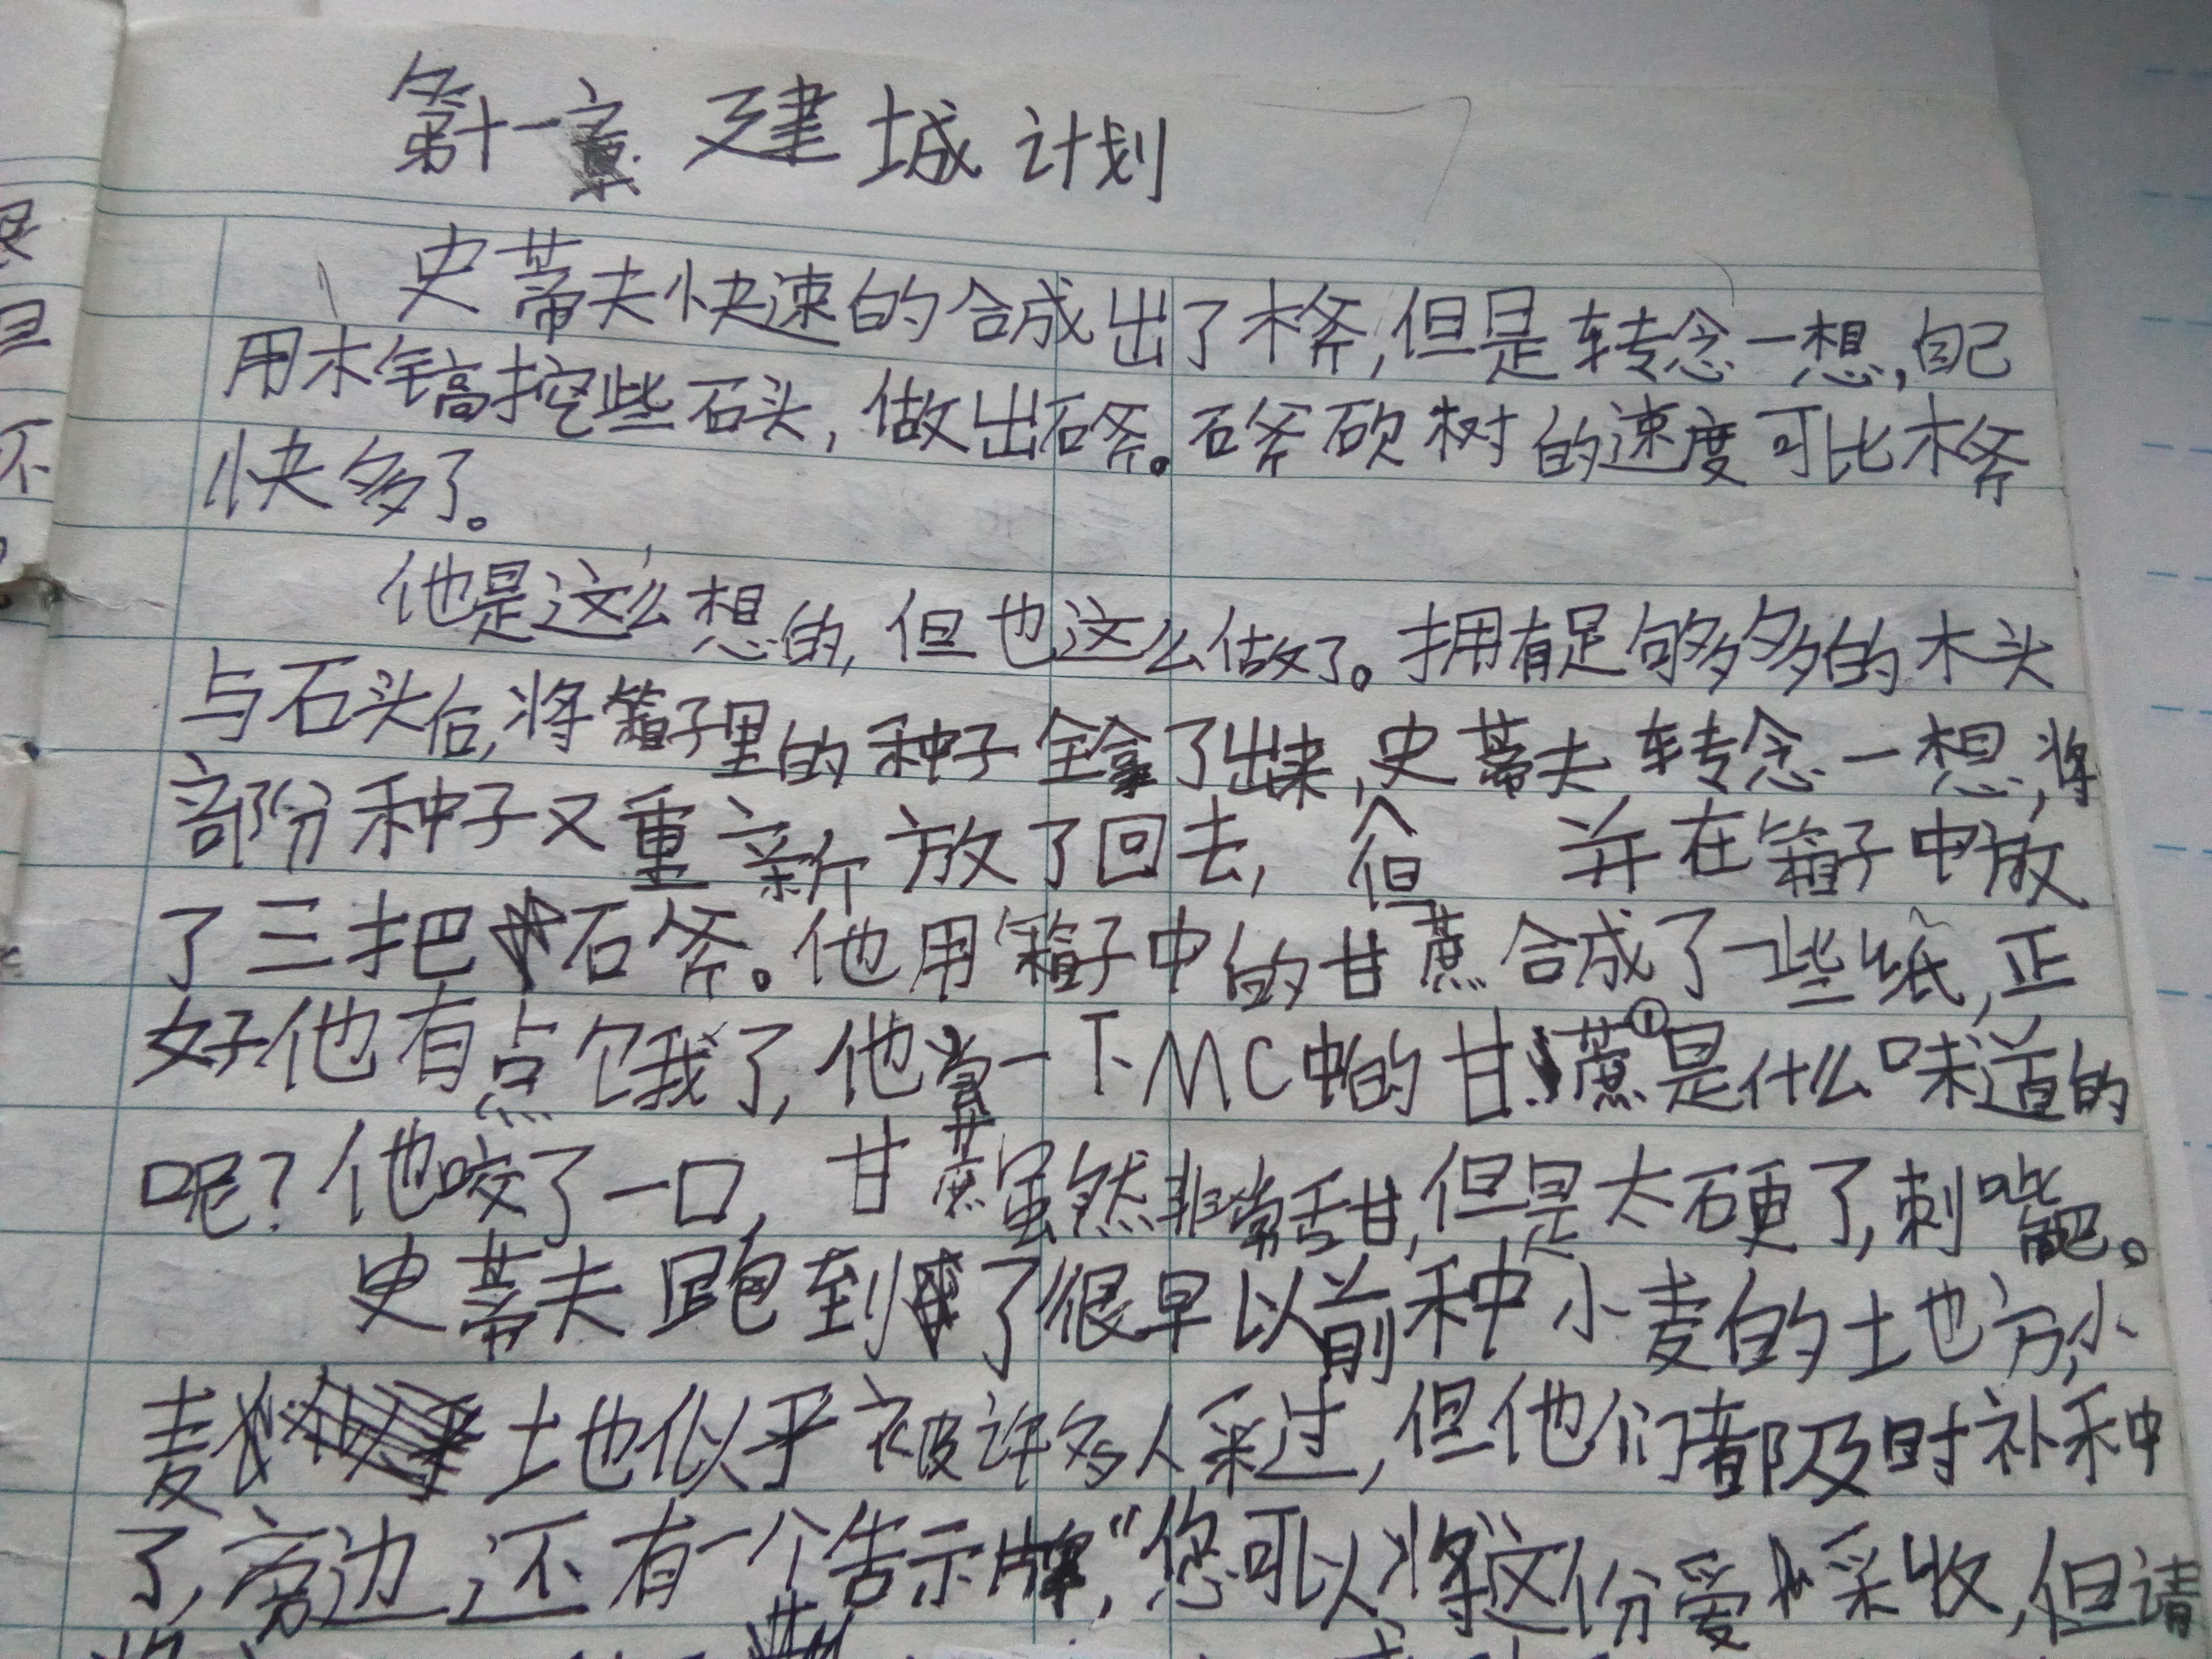 第十一章 建城计划
史蒂夫快速的合成出了木斧,但是转念一想,自己
用木镐挖些石头,做出石斧。石斧砍树的速度可比木斧
快多了。
他是这么想的,但也这么做了。拥有足够多多的木头
与石头后,将箱子里的种子全拿了出来,史蒂夫转念一想,将
部份种子又重新放了回去, 但 并在箱子中放
了三把石斧。他用箱子中的甘蔗合成了一些纸,正
好他有点饿了,他尝一下MC中的甘蔗①是什么味道的
呢?他咬了一口,甘蔗虽然非常甜,但是太硬了,刺嘴巴。
史蒂夫跑到了很早以前种小麦的土地方,小
麦土地似乎被许多人采过,但他们都及时补种
了,旁边还有一个告示牌,“您可以将这份爱采收,但请